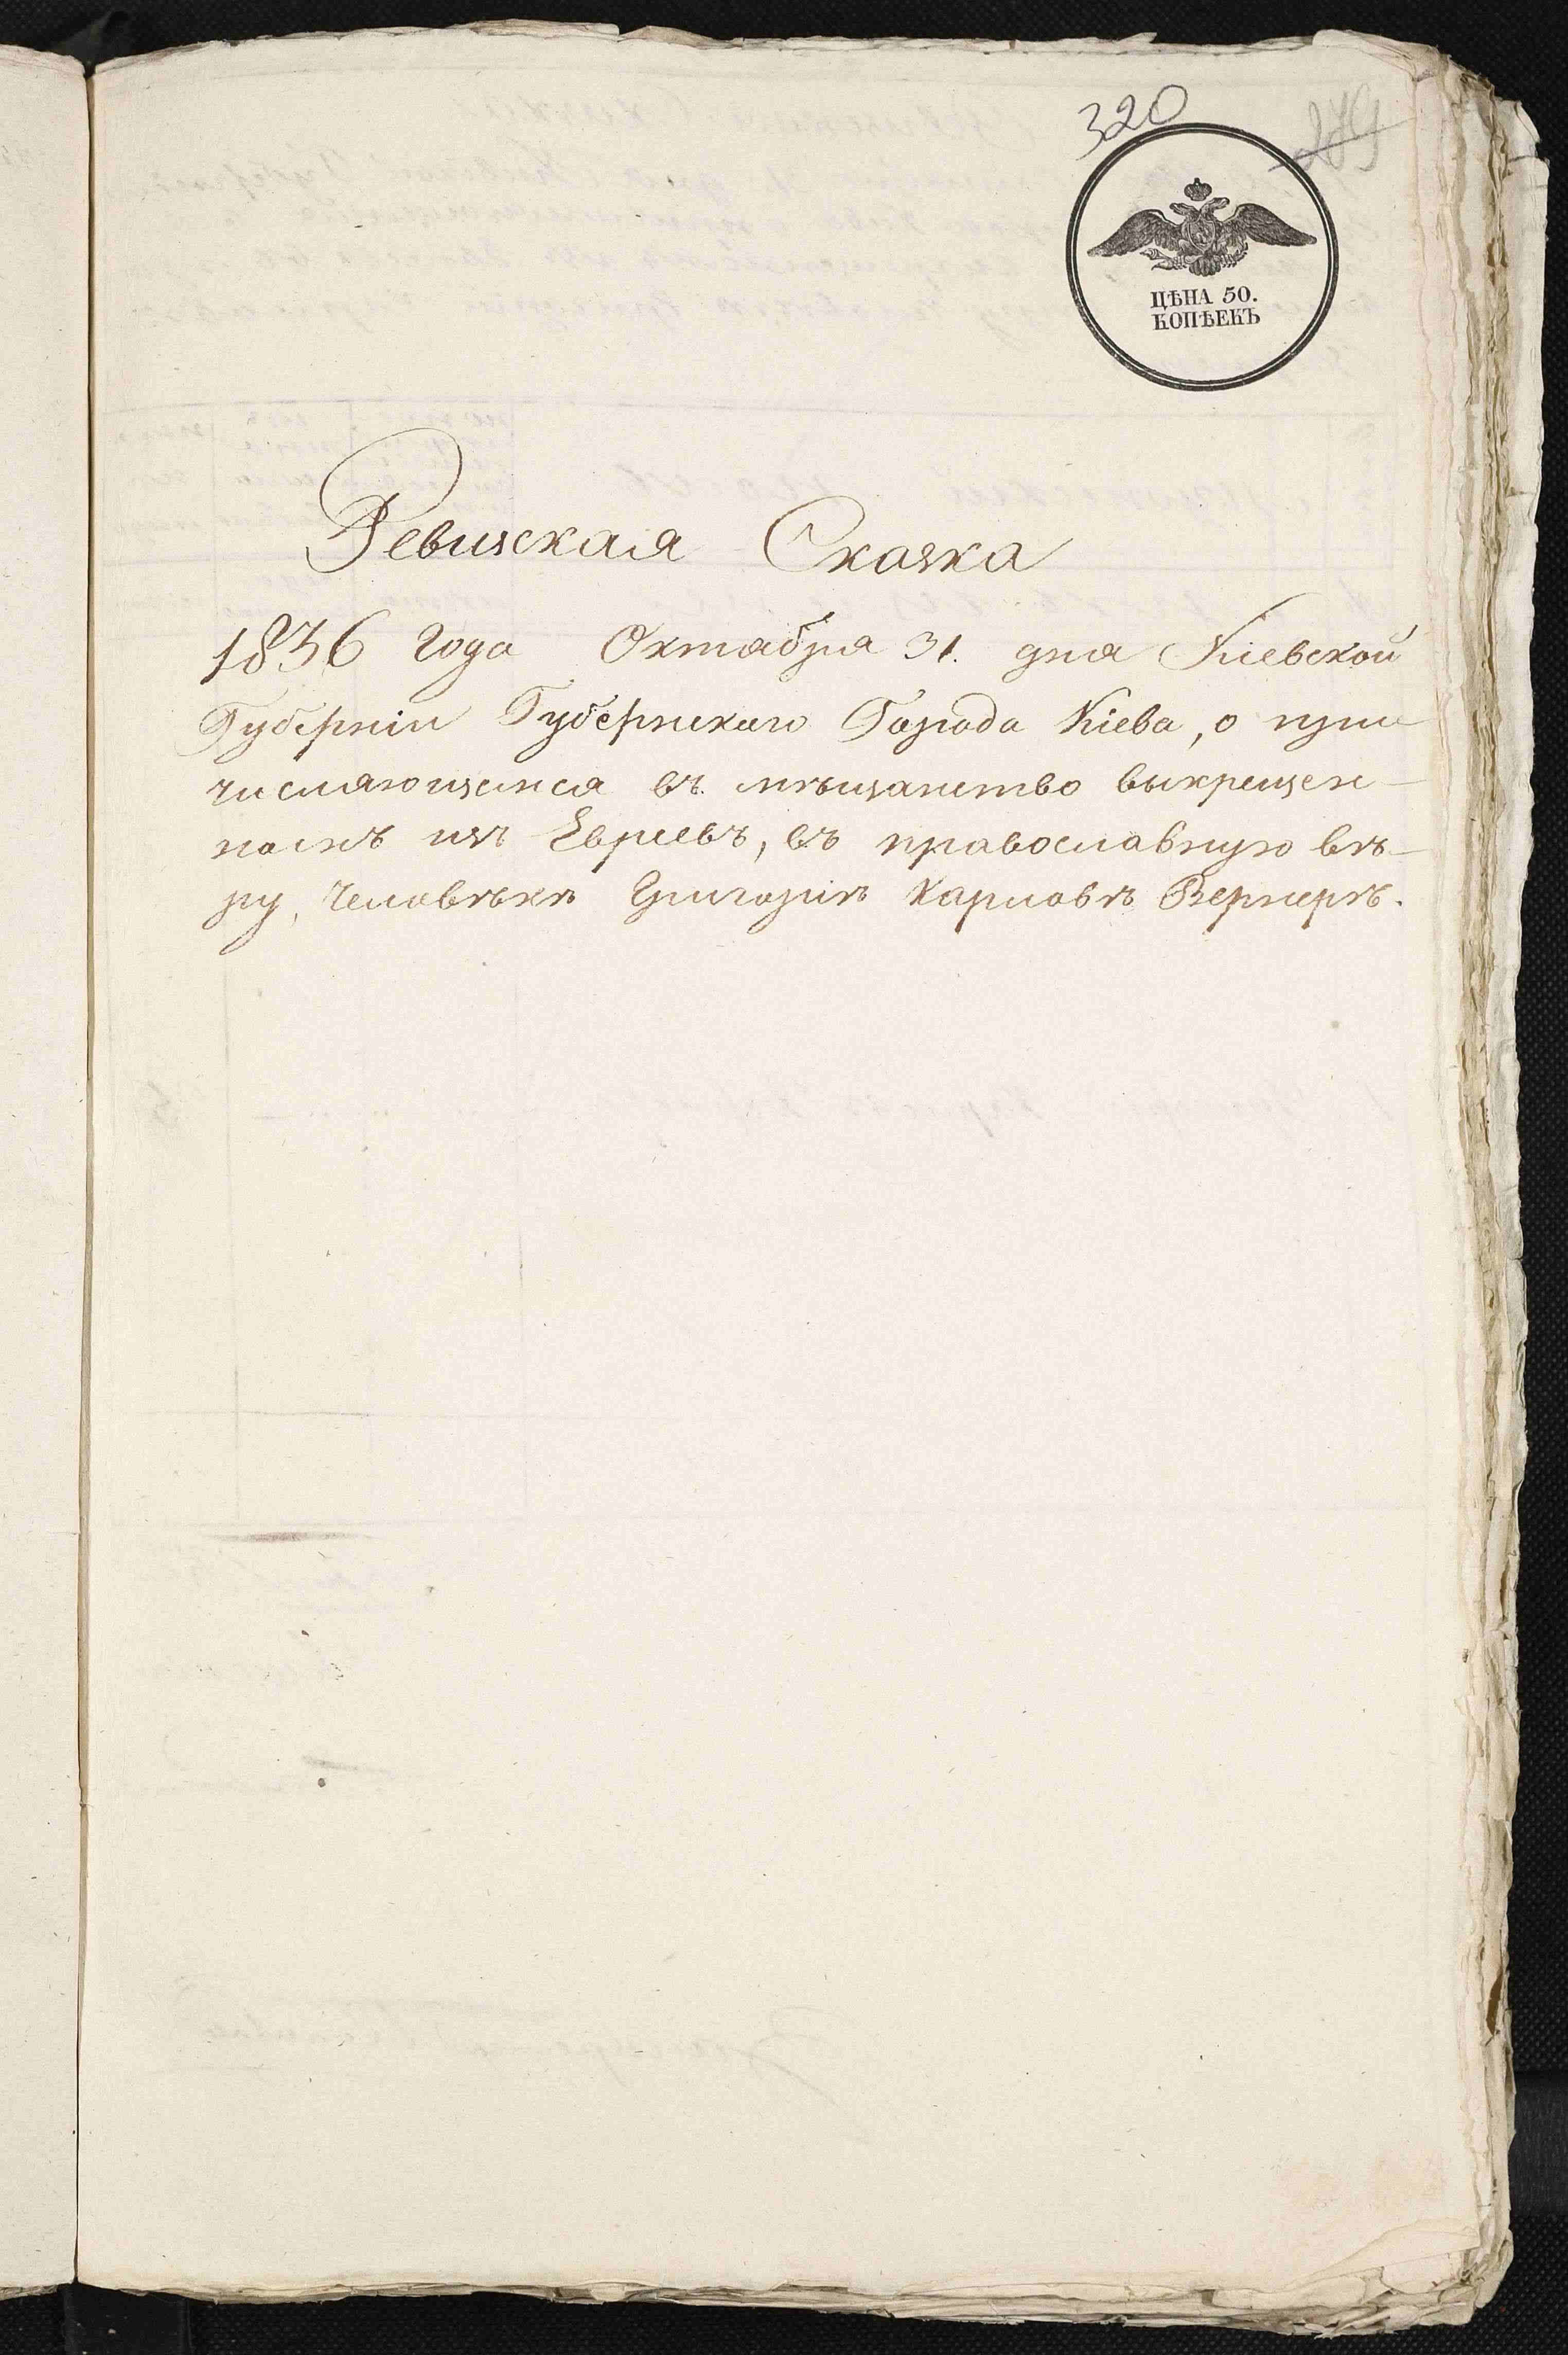 320
279
ЦѢНА 50.
КОПѢЕКЪ
Ревизская Сказка
1836 года Октября 31. дня Кіевской
Губерніи Губернскаго Города Кіева, о при
числяющемся въ мѣщанство выкрещен-
номъ изъ Евреевъ, въ православную вѣ-
ру, Человѣкѣ Григоріѣ Карловѣ Вернерѣ.